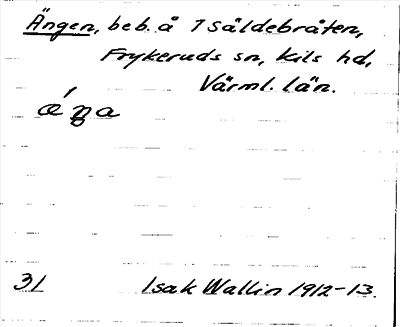 Ängen, beb. å 1 Säldebråten,
Frykeruds sn, Kils hd,
Värml. län.
31 Isak Wallin 1912-13.